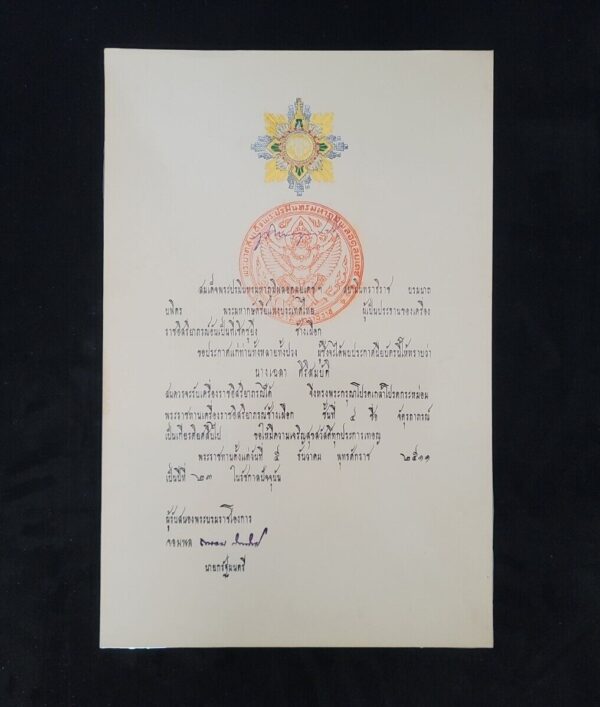 สมเด็จพระปรมินทรมหาภูมิพลอดุลยเดชฯ สยามินทราธิราช บรมนาถ
บพิตร พระมหากษัตริย์แห่งประเทศไทย ผู้เป็นประธานของเครื่อง
ราชอิสริยาภรณ์อันเป็นที่เชิดชูยิ่ง ช้างเผือก
ขอประกาศแก่ท่านทั้งหลายทั้งปวง ผู้ซึ่งจะได้พบประกาศนียบัตรนี้ให้ทราบว่า
นางเฉลา ศิริสมบัติ
สมควรจะรับเครื่องราชอิสริยาภรณ์ได้ จึงทรงพระกรุณาโปรดเกล้าโปรดกระหม่อม
พระราชทานเครื่องราชอิสริยาภรณ์ช้างเผือก ชั้นที่ ๔ ชื่อ จัตุรถาภรณ์
เป็นเกียรติยศสืบไป ขอให้มีความเจริญสุขสวัสดิ์ทุกประการเทอญ
พระราชทานตั้งแต่วันที่ ๕ ธันวาคม พุทธศักราช ๒๕๑๑
เป็นปีที่ ๒๓ ในรัชกาลปัจจุบัน
ผู้รับสนองพระบรมราชโองการ
จอมพล
นายกรัฐมนตรี